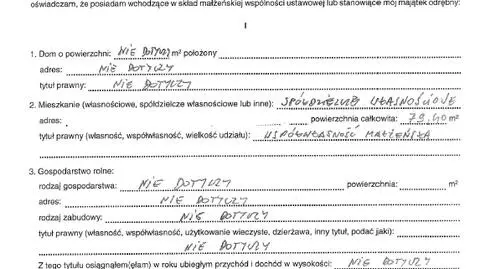 oświadczam, że posiadam wchodzące w skład małżeńskiej wspólności ustawowej lub stanowiące mój majątek odrębny:
I
1. Dom o powierzchni: NIE DOTYCZY m² położony
adres: NIE DOTYCZY
tytuł prawny: NIE DOTYCZY
2. Mieszkanie (własnościowe, spółdzielcze własnościowe lub inne): SPÓŁDZIELCZE WŁASNOŚCIOWE
adres: powierzchnia całkowita: 79,40 m²
tytuł prawny (własność, współwłasność, wielkość udziału): WSPÓŁWŁASNOŚĆ MAŁŻEŃSKA
3. Gospodarstwo rolne:
rodzaj gospodarstwa: NIE DOTYCZY powierzchnia: m²
adres: NIE DOTYCZY
rodzaj zabudowy: NIE DOTYCZY
tytuł prawny (własność, współwłasność, użytkowanie wieczyste, dzierżawa, inny tytuł, podać jaki):
NIE DOTYCZY
Z tego tytułu osiągnąłem(ęłam) w roku ubiegłym przychód i dochód w wysokości: NIE DOTYCZY